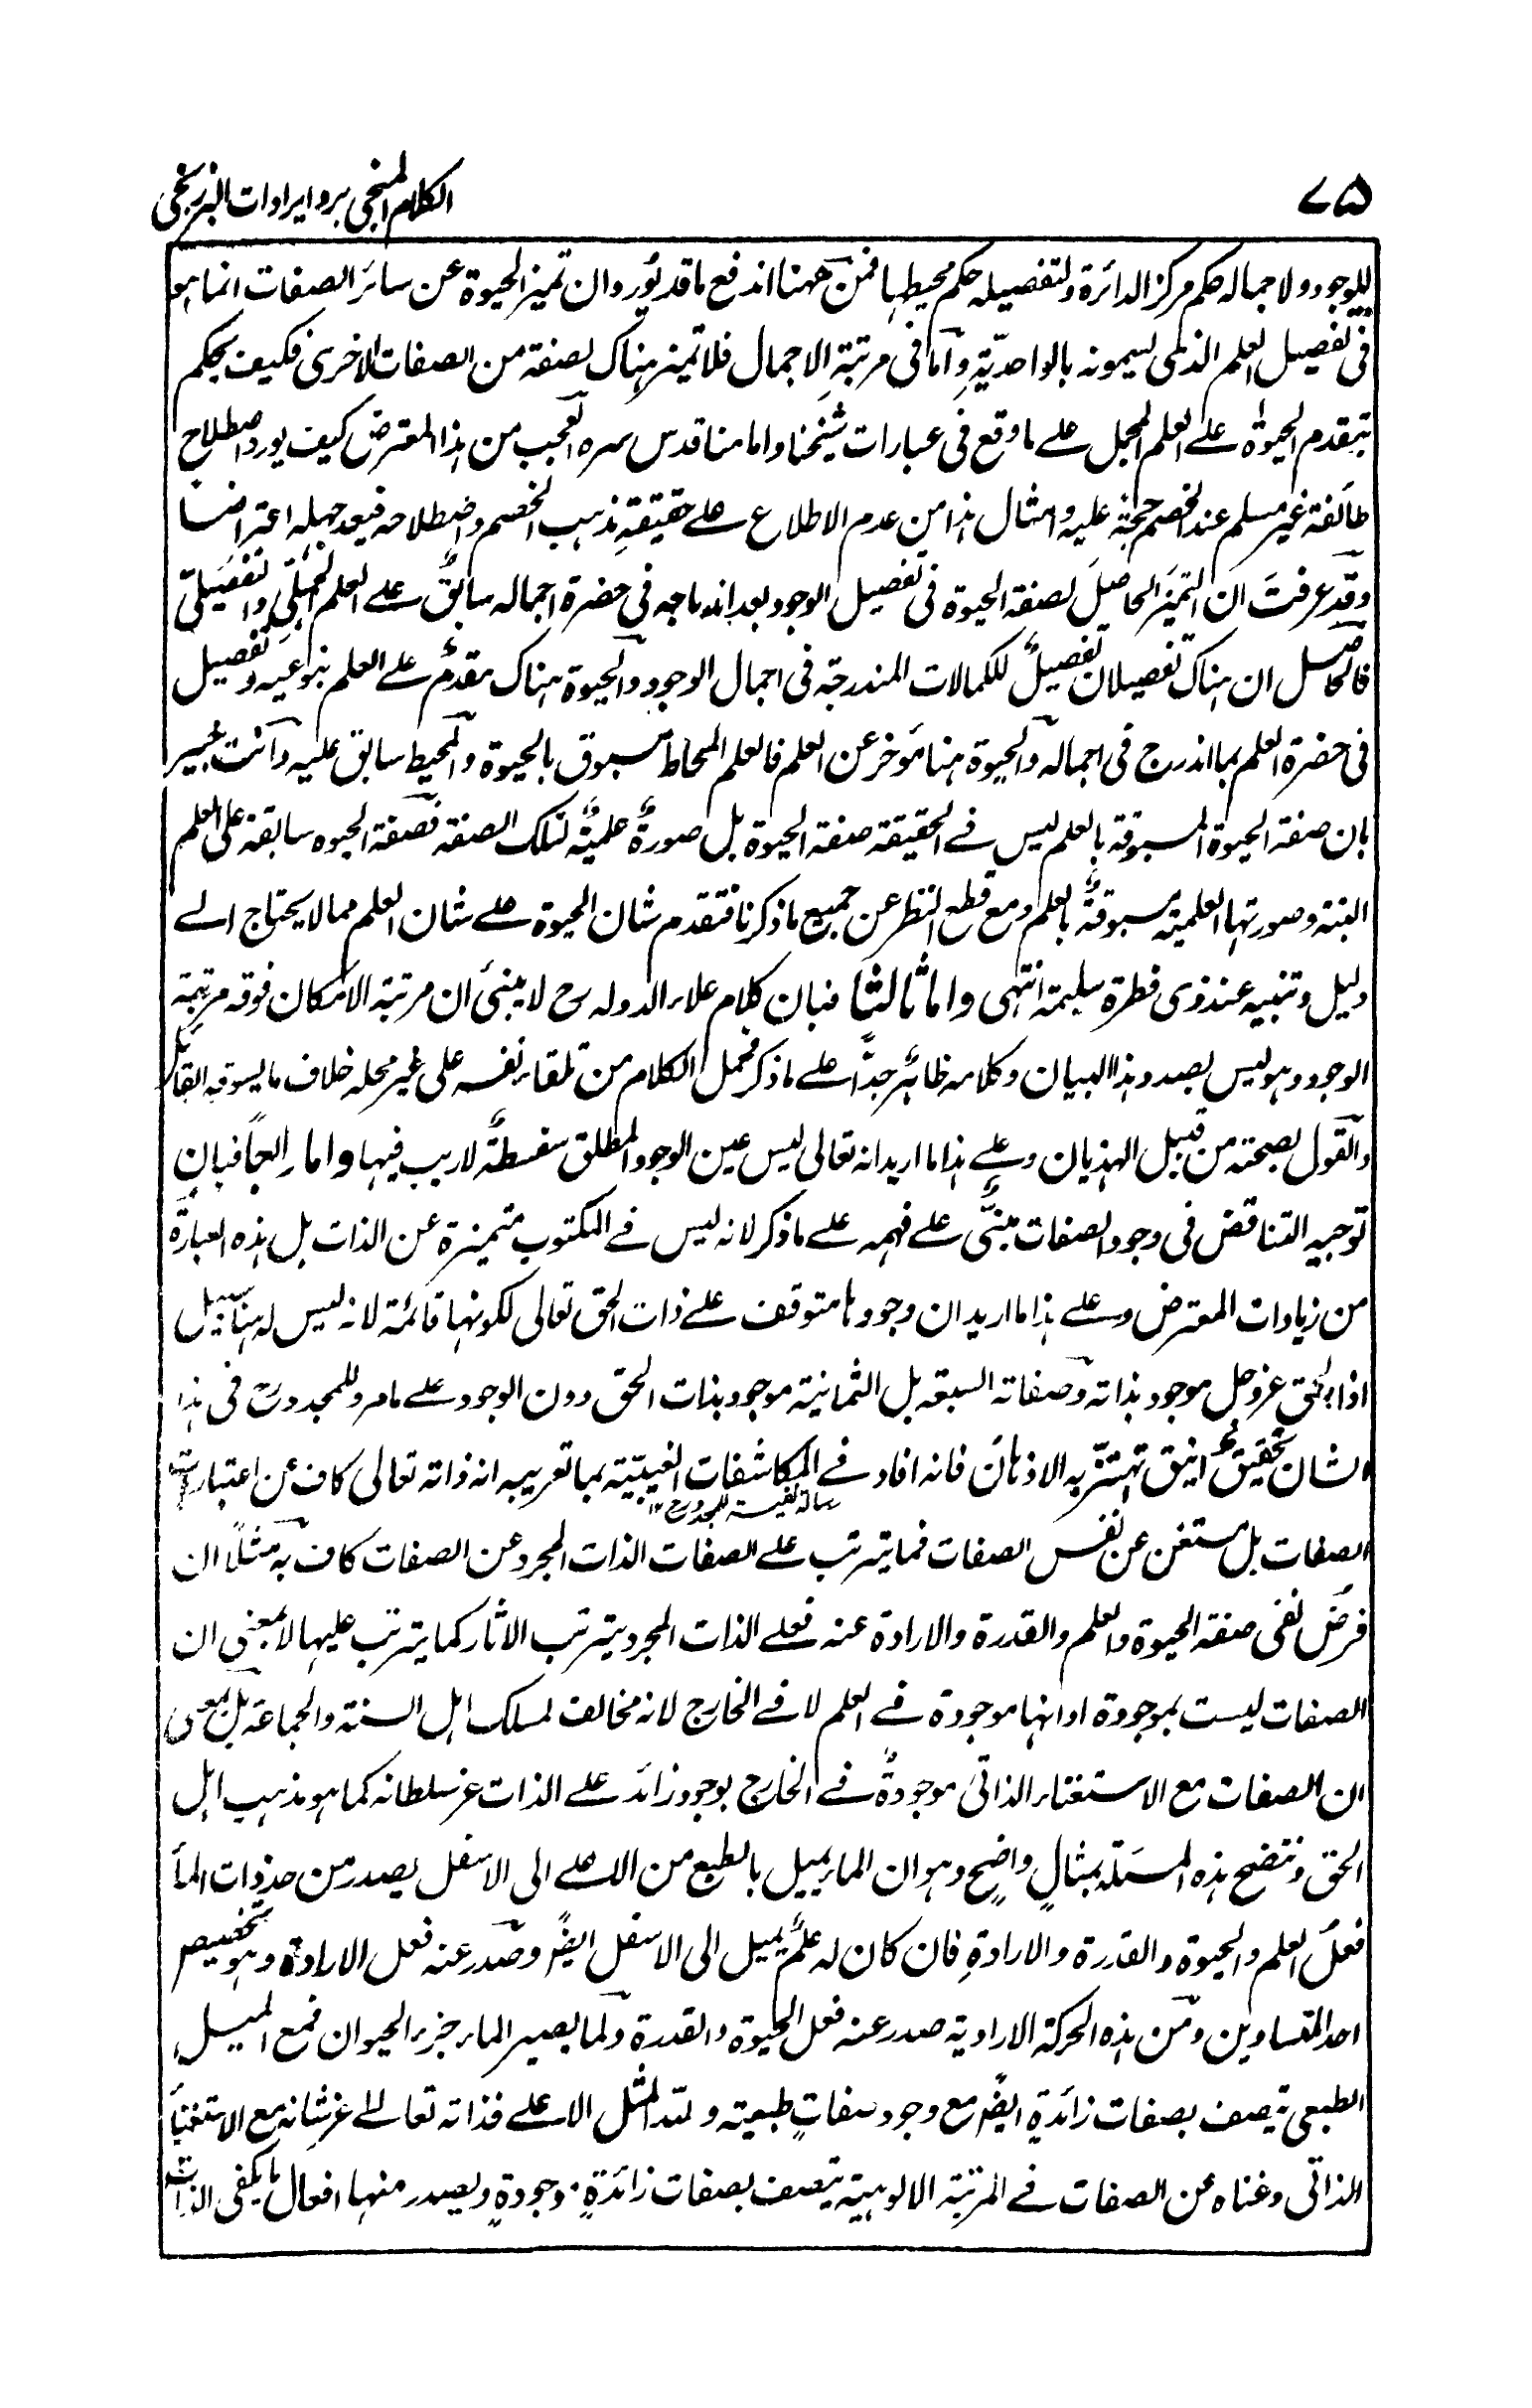 ٧٥
الكلام المنجى برد ايرادات البرزنجى
للوجود ولاجماله حكم مركز الدائرة ولتفصيله حكم محيطها فمن ههنا اندفع ما قد يورد ان تميز الحيوة عن سائر الصفات انما هو
فى تفصيل العلم الذى يسمونه بالواحديّة وامّا فى مرتبةِ الاجمال فلا تميز هناك لصفة من الصفات الاخرى فكيف يحكم
بتقدم الحيوة على العلم المجمل على ما وقع فى عبارات شيخنا وامامنا قدس سره العجب من هذا المعترض كيف يورد اصطلاح
طائفة غير مسلم عند الخصم حجة عليه وامثال هذا من عدم الاطلاع على حقيقةِ مذهب الخصم واصطلاحه فيعد جهله اعتراضا
وقد عرفتَ ان التميّزَ الحاصلَ لصفة الحيوة فى تفصيل الوجود بعد اندماجه فى حضرة اجماله سابقٌ على العلم الجملىّ والتفصيلىّ
فالحاصل ان هناك تفصيلان تفصيلٌ للكمالات المندرجة فى اجمال الوجود والحيوة هناك مقدمٌ على العلم بنوعيه وتفصيل
فى حضرة العلم بما اندرج فى اجماله والحيوة هنا مؤخر عن العلم فالعلم المحاط مسبوق بالحيوة والمحيط سابق عليه وانت خبير
بان صفة الحيوة المسبوقة بالعلم ليس فى الحقيقة صفة الحيوة بل صورةٌ علميّةٌ لتلك الصفة فصفة الحيوه سابقة على العلم
البتة وصورتها العلمية مسبوقةٌ بالعلم ومع قطع النظر عن جميع ما ذكرنا فتقدم شان الحيوة على شان العلم مما لا يحتاج الى
دليل وتنبيه عند ذى فطرة سليمة انتهى واما ثالثا فبان كلام علاء الدوله رح لا يبنئ ان مرتبة الامكان فوقه مرتبة
الوجود وهو ليس بصدد هذا البيان وكلامه ظاهرٌ جدّاً على ما ذكر فحمل الكلام من تلقاء نفسه على غير محله خلاف ما يسوقه القائل
والقول بصحته من قبيل الهذيان وعلى هذا ما اريد انه تعالى ليس عين الوجود المطلق سفسطةٌ لا ريب فيها واما رابعاً فبان
توجيه التناقض فى وجود الصفات مبنىٌّ على فهمه على ما ذكر لانه ليس فى المكتوب متميزة عن الذات بل هذه العبارة
من زيادات المعترض وعلى هذا ما اريد ان وجودها متوقف على ذات الحق تعالى لكونها قائمة لانه ليس له هنا سبيل
اذا الحق عز وجل موجود بذاته وصفاته السبعة بل الثمانية موجود بذات الحق دون الوجود على ما مر وللمجدد رح فى هذا
الشان تحقيقٌ انيق تهتزّ به الاذهان فانه افاد فى المكاشفات الغيبيّة بما تعريبه انه ذاته تعالى كاف عن اعتبارات
رسالة نفيسة للمجدد رح ١٢
الصفات بل مستغن عن نفس الصفات فما يترتب على الصفات الذات المجرد عن الصفات كاف به مثلًا ان
فرضَ نفى صفة الحيوة والعلم والقدرة والارادة عنه فعلى الذات المجرد يترتب الاثار كما يترتب عليها لا بمعنى ان
الصفات ليست بموجودة او انها موجودة فى العلم لا فى الخارج لانه مخالف لمسلك اهل السنة والجماعة بل بمعنى
ان الصفات مع الاستغناء الذاتى موجودةٌ فى الخارج بوجود زائد على الذات عز سلطانه كما هو مذهب اهل
الحق وتتضح هذه المسئلة بمثالٍ واضحٍ وهو ان الماء يميل بالطبع من الاعلى الى الاسفل يصدر من حد ذات الماء
فعلُ العلم والحيوة والقدرة والارادةِ فان كان له علمٌ يميل الى الاسفل ايضً وصدر عنه فعل الارادة وهو تخصيص
احد المتساويين ومن هذه الحركة الارادية صدر عنه فعل الحيوة والقدرة ولما يصير الماء جزء الحيوان فمع الميل
الطبعى يتصف بصفات زائدةٍ ايضً مع وجود صفاتٍ طبعية ولله المثل الاعلى فذاته تعالى عز شانه مع الاستغناء
الذاتى وغناه عن الصفات فى المرتبة الالوهية يتصف بصفات زائدةٍ موجودةٍ ويصدر منها افعال ما يكفى الذات